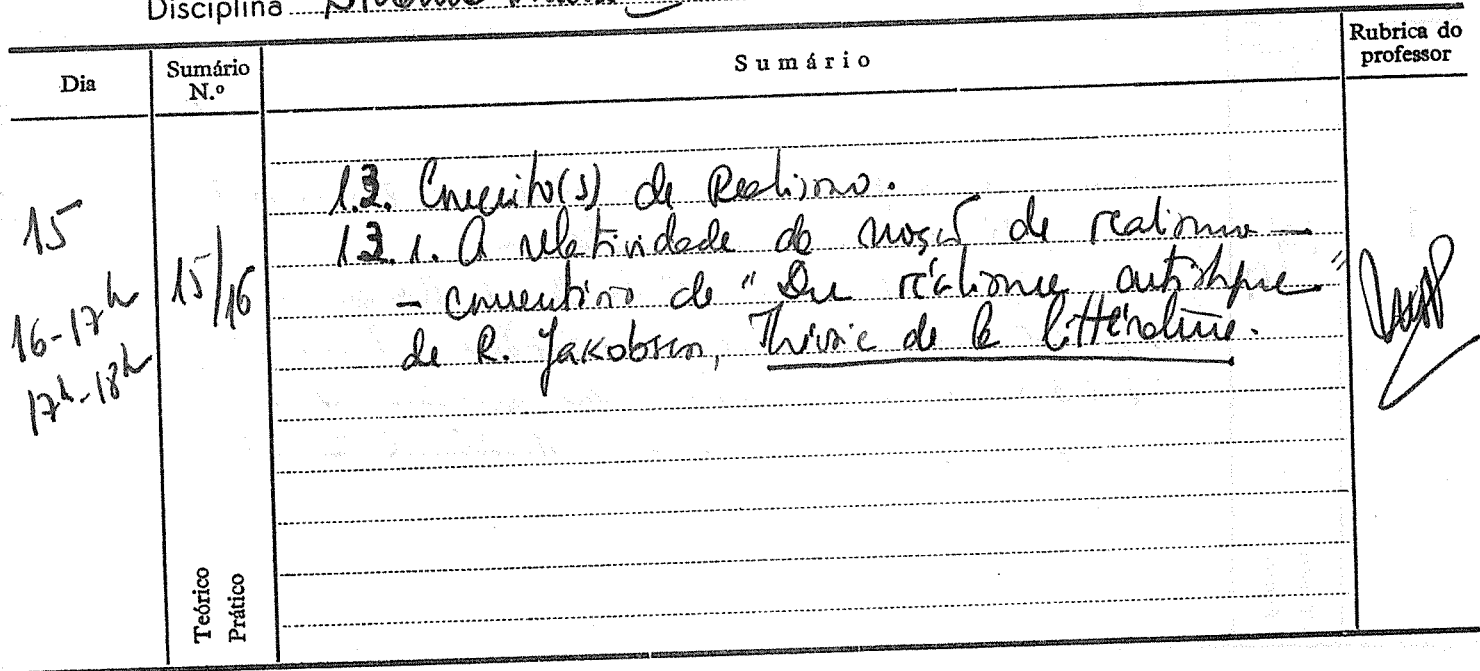 Disciplina
Dia
Sumário N.º
Sumário
Rubrica do professor
15
16-17h
17h-18h
15/16
1.3. Conceito(s) de Realismo.
1.3.1. A relatividade da noção de realismo —
— comentário de "Du réalisme artistique"
de R. Jakobson, Théorie de la littérature.
Teórico
Prático